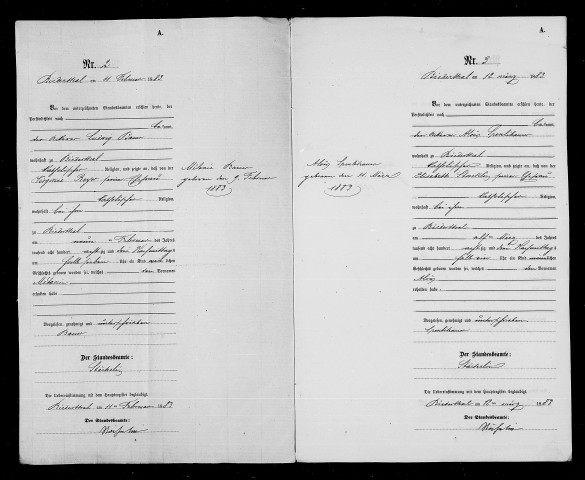 A.
Nr. 2
Biederthal am 11 Februar 1883
Vor dem unterzeichneten Standesbeamten erschien heute, der
Persönlichkeit nach
bekannt,
der Ackerer
wohnhaft zu Biederthal
katholischer Religion, und zeigte an, daß von der
seiner Ehefrau
katholischer Religion,
wohnhaft bei ihm
zu Biederthal
am neunten Februar des Jahres
tausend acht hundert achtzig und drei Nachmittags
um halb sieben Uhr ein Kind weiblichen
Geschlechts geboren worden sei, welches den Vornamen
Melanie
erhalten habe
Vorgelesen, genehmigt und unterschrieben
Baur
Der Standesbeamte:
Stöcklin
Die Uebereinstimmung mit dem Hauptregister beglaubigt
Biederthal am 11 Februar 1883
Der Standesbeamte:
Melanie Baur
geboren den 9. Februar
1883
A.
Nr. 3
Biederthal am 12 März 1883
Vor dem unterzeichneten Standesbeamten erschien heute, der
Persönlichkeit nach
bekannt,
der Ackerer Alois
wohnhaft zu Biederthal
katholischer Religion, und zeigte an, daß von der
Elisabeth Stöcklin seiner Ehefrau
katholischer Religion,
wohnhaft bei ihm
zu Biederthal
am elften März des Jahres
tausend acht hundert achtzig und drei Nachmittags
um halb ein Uhr ein Kind männlichen
Geschlechts geboren worden sei, welches den Vornamen
Alois
erhalten habe
Vorgelesen, genehmigt und unterschrieben
Der Standesbeamte:
Stöcklin
Die Uebereinstimmung mit dem Hauptregister beglaubigt
Biederthal am 12 März 1883
Der Standesbeamte:
Stöcklin
Alois
geboren den 11. März
1883